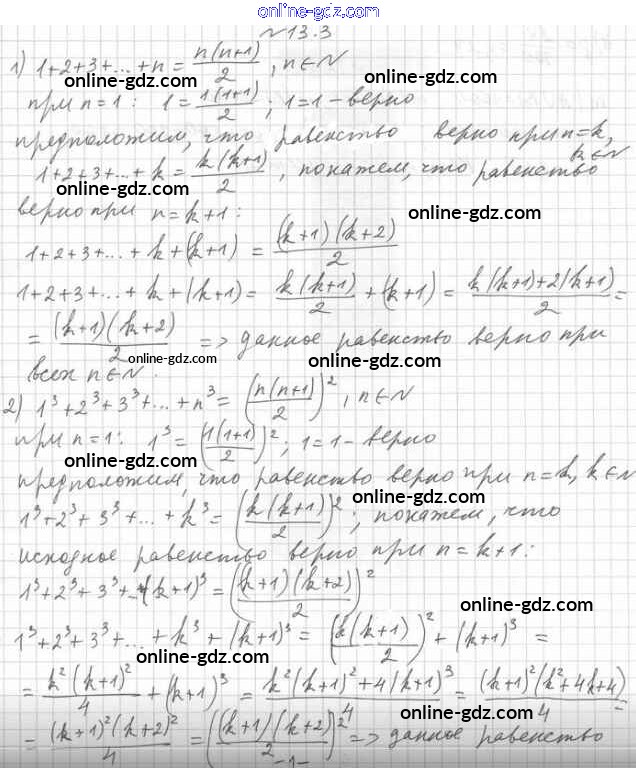 online-gdz.com
№13.3
1) 1+2+3+...+n = n(n+1)/2, n∈N
online-gdz.com online-gdz.com
при n=1: 1 = 1(1+1)/2; 1=1 - верно
предположим, что равенство верно при n=k, k∈N
1+2+3+...+k = k(k+1)/2, покажем, что равенство
online-gdz.com online-gdz.com
верно при n=k+1:
online-gdz.com
1+2+3+...+k+(k+1) = (k+1)(k+2)/2
1+2+3+...+k+(k+1) = k(k+1)/2 + (k+1) = k(k+1)+2(k+1)/2 =
= (k+1)(k+2)/2 => данное равенство верно при
online-gdz.com online-gdz.com
всех n∈N.
2) 1³+2³+3³+...+n³ = (n(n+1)/2)², n∈N
при n=1: 1³ = (1(1+1)/2)²; 1=1 - верно
online-gdz.com
предположим, что равенство верно при n=k, k∈N
online-gdz.com
1³+2³+3³+...+k³ = (k(k+1)/2)²; покажем, что
исходное равенство верно при n=k+1:
1³+2³+3³+...+(k+1)³ = ((k+1)(k+2)/2)²
online-gdz.com
1³+2³+3³+...+k³+(k+1)³ = (k(k+1)/2)² + (k+1)³ =
online-gdz.com
= k²(k+1)²/4 + (k+1)³ = k²(k+1)²+4(k+1)³/4 = (k+1)²(k²+4k+4)/4 =
online-gdz.com
= (k+1)²(k+2)²/4 = ((k+1)(k+2)/2)² => данное равенство
-1-